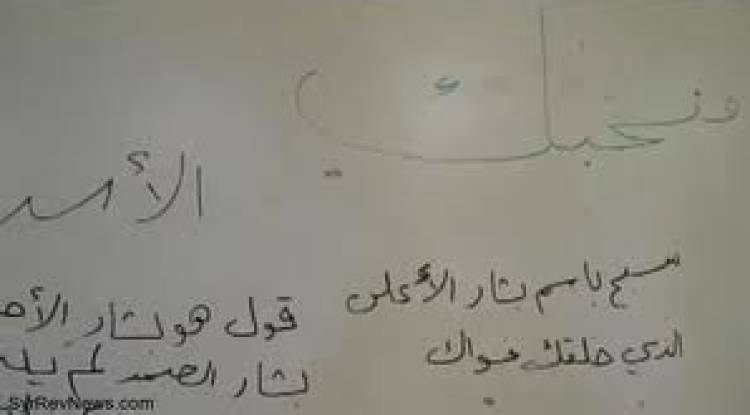 ونحبك
الأسد
سبح باسم بشار الأعلى
الذي خلقك فسواك
قول هو بشار الأحد
بشار الصمد لم يلد
SyrRevNews.com